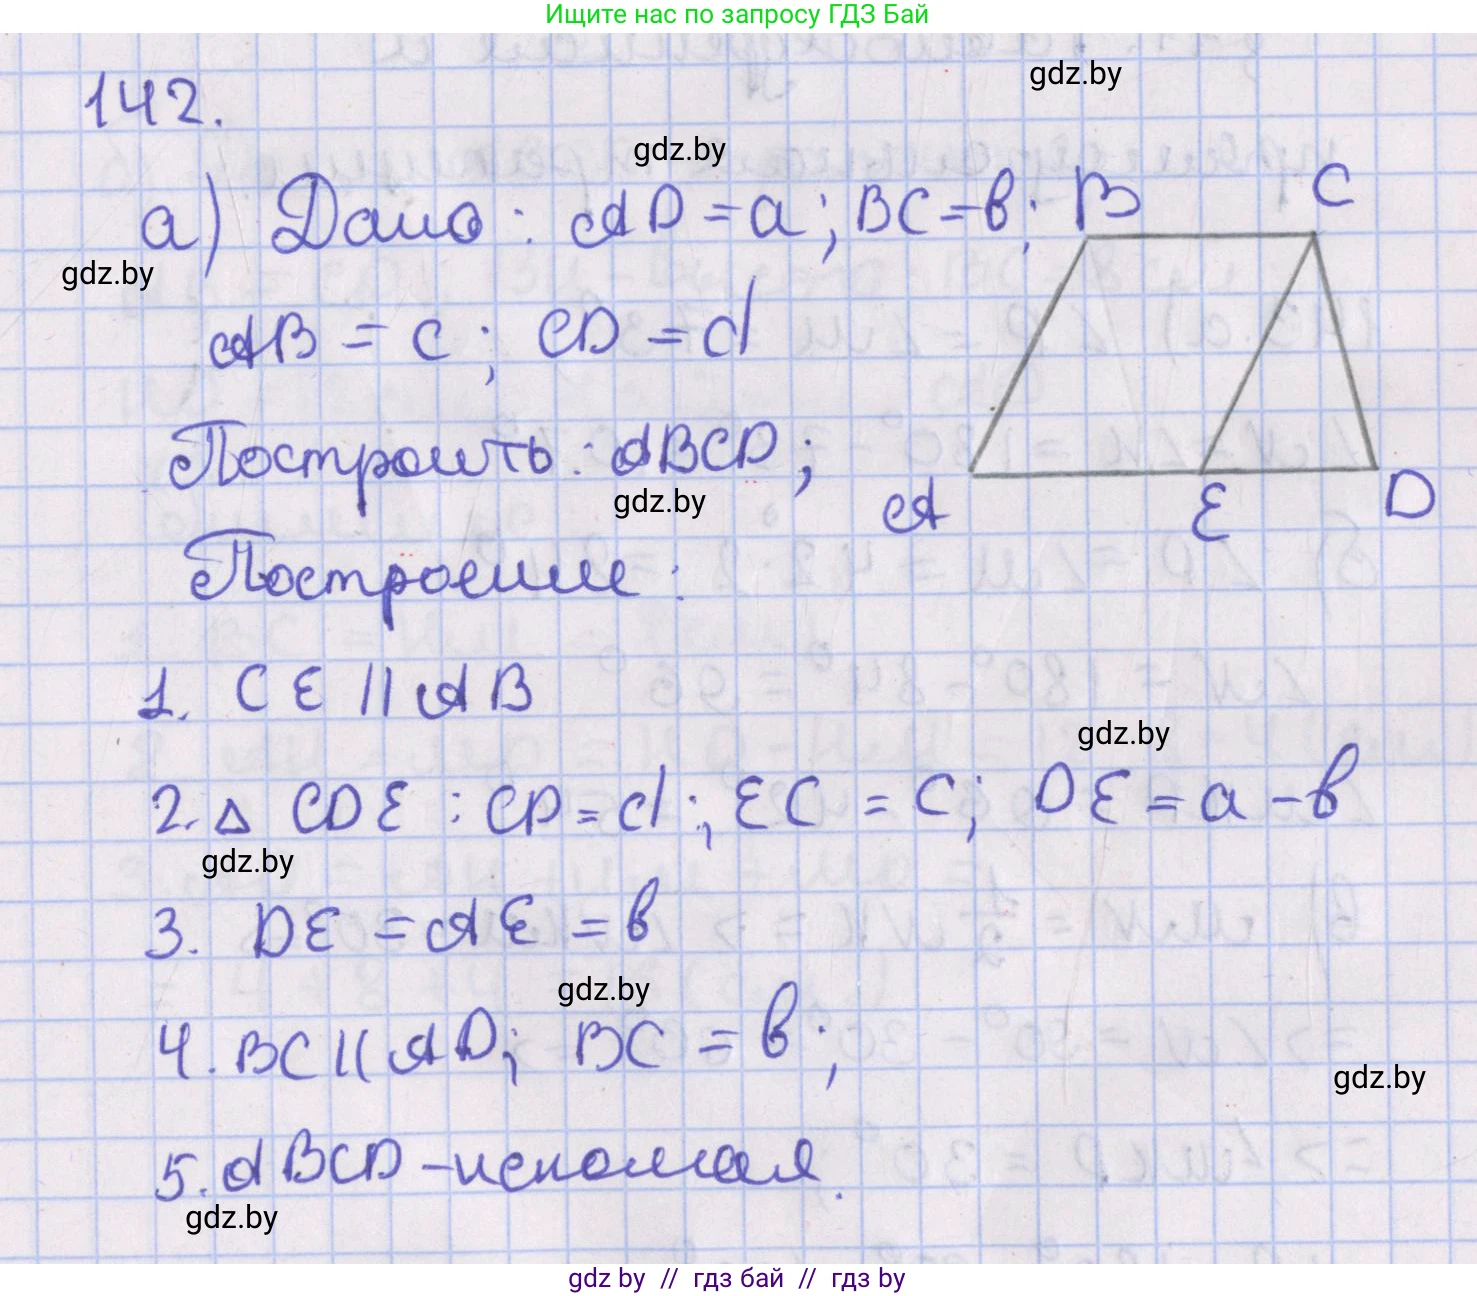 Ищите нас по запросу ГДЗ Бай
142.
gdz.by
gdz.by
а) Дано: AD = a; BC = b; B C
gdz.by
AB = c; CD = d
Построить: ABCD;
gdz.by
A E D
Построение:
1. CE || AB
gdz.by
2. △ CDE : CD = d; EC = c; DE = a - b
gdz.by
3. DE = AE = b
gdz.by
4. BC || AD; BC = b;
gdz.by
5. ABCD - искомая.
gdz.by
gdz by // гдз бай // гдз by